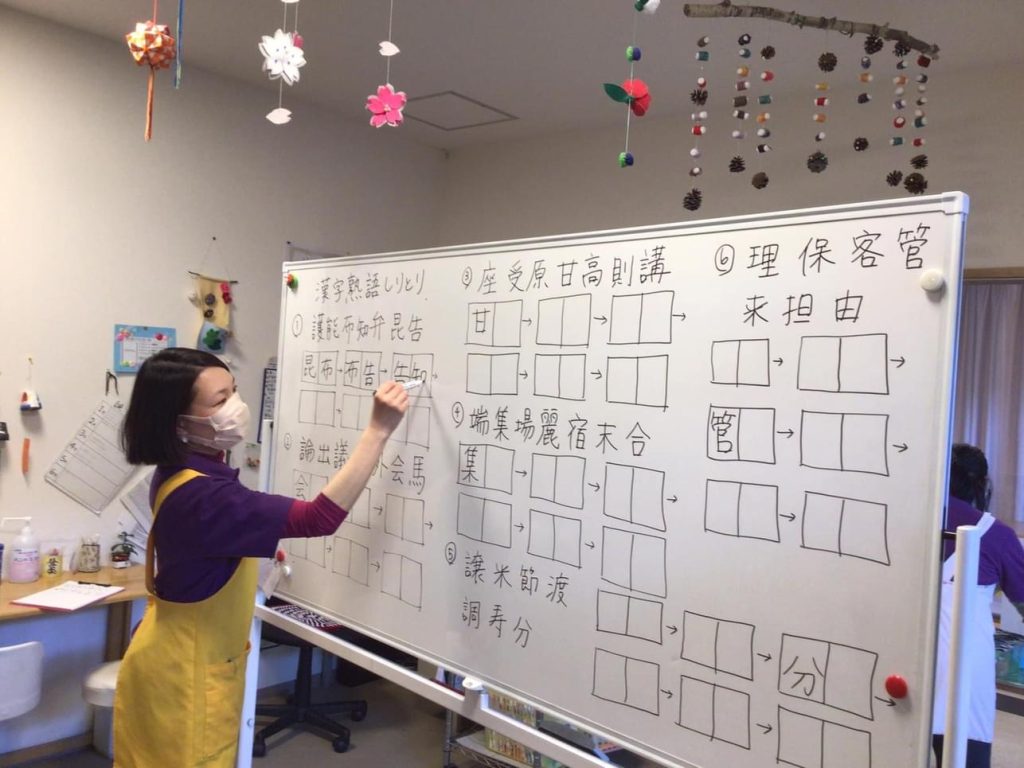 漢字熟語しりとり
① 護能布知弁昆告
昆布→布告→告知→
② 論出議 外会馬
会
③ 座受原甘高則講
甘
④ 端集場麗宿末合
集
⑤ 譲米節渡
調寿分
分
⑥ 理保客管
来担由
管